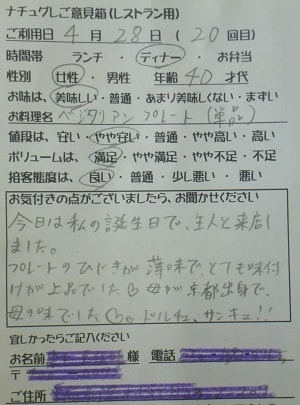 ナチュグしご意見箱(レストラン用)
ご利用日 4月 28日 ( 20 回目)
時間帯 ランチ・ディナー・お弁当
性別 女性・男性 年齢 40 才代
お味は、美味しい・普通・あまり美味しくない・まずい
お料理名 ベジタリアンプレート(単品)
値段は、安い・やや安い・普通・やや高い・高い
ボリュームは、満足・やや満足・やや不足・不足
接客態度は、良い・普通・少し悪い・悪い
お気付きの点がございましたら、お聞かせください
今日は私の誕生日で、主人と来店し
ました。
プレートのひじきが薄味で、とても味付
けが上品でした 母が京都出身で、
母の味でした ドルチェ、サンキュ!!
宜しかったらご記入ください
お名前 様 電話
〒
ご住所